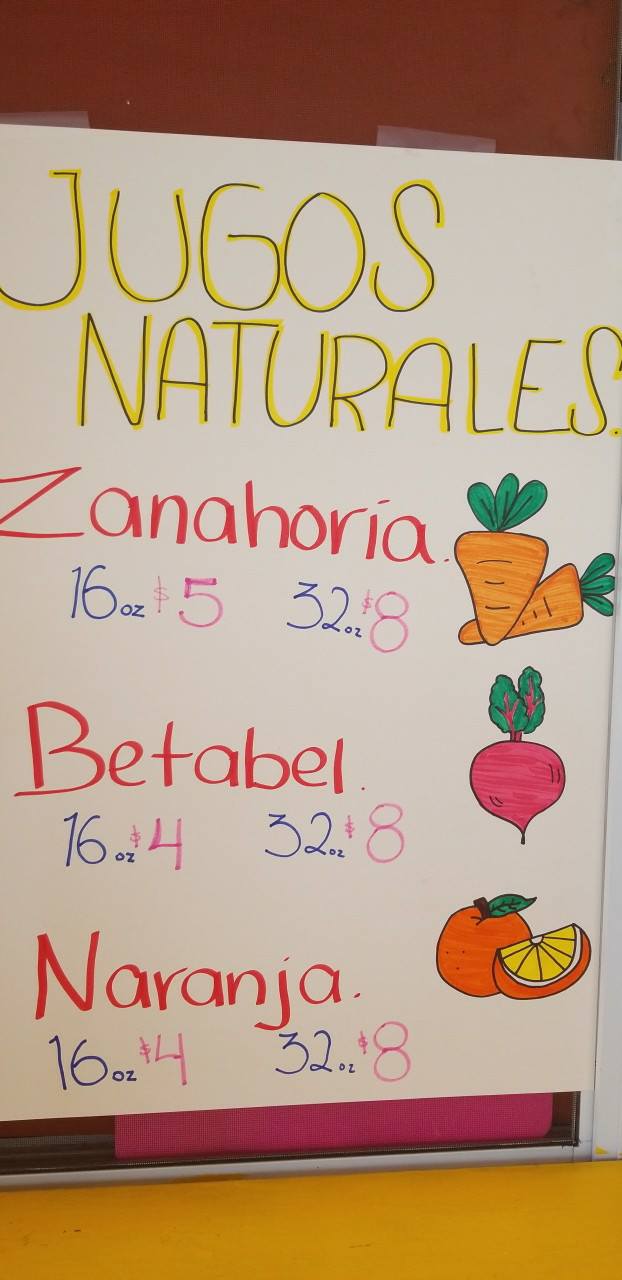 JUGOS
NATURALES.
Zanahoria.
16oz $5 32.oz $8
Betabel.
16.oz $4 32.oz $8
Naranja.
16.oz $4 32.oz $8